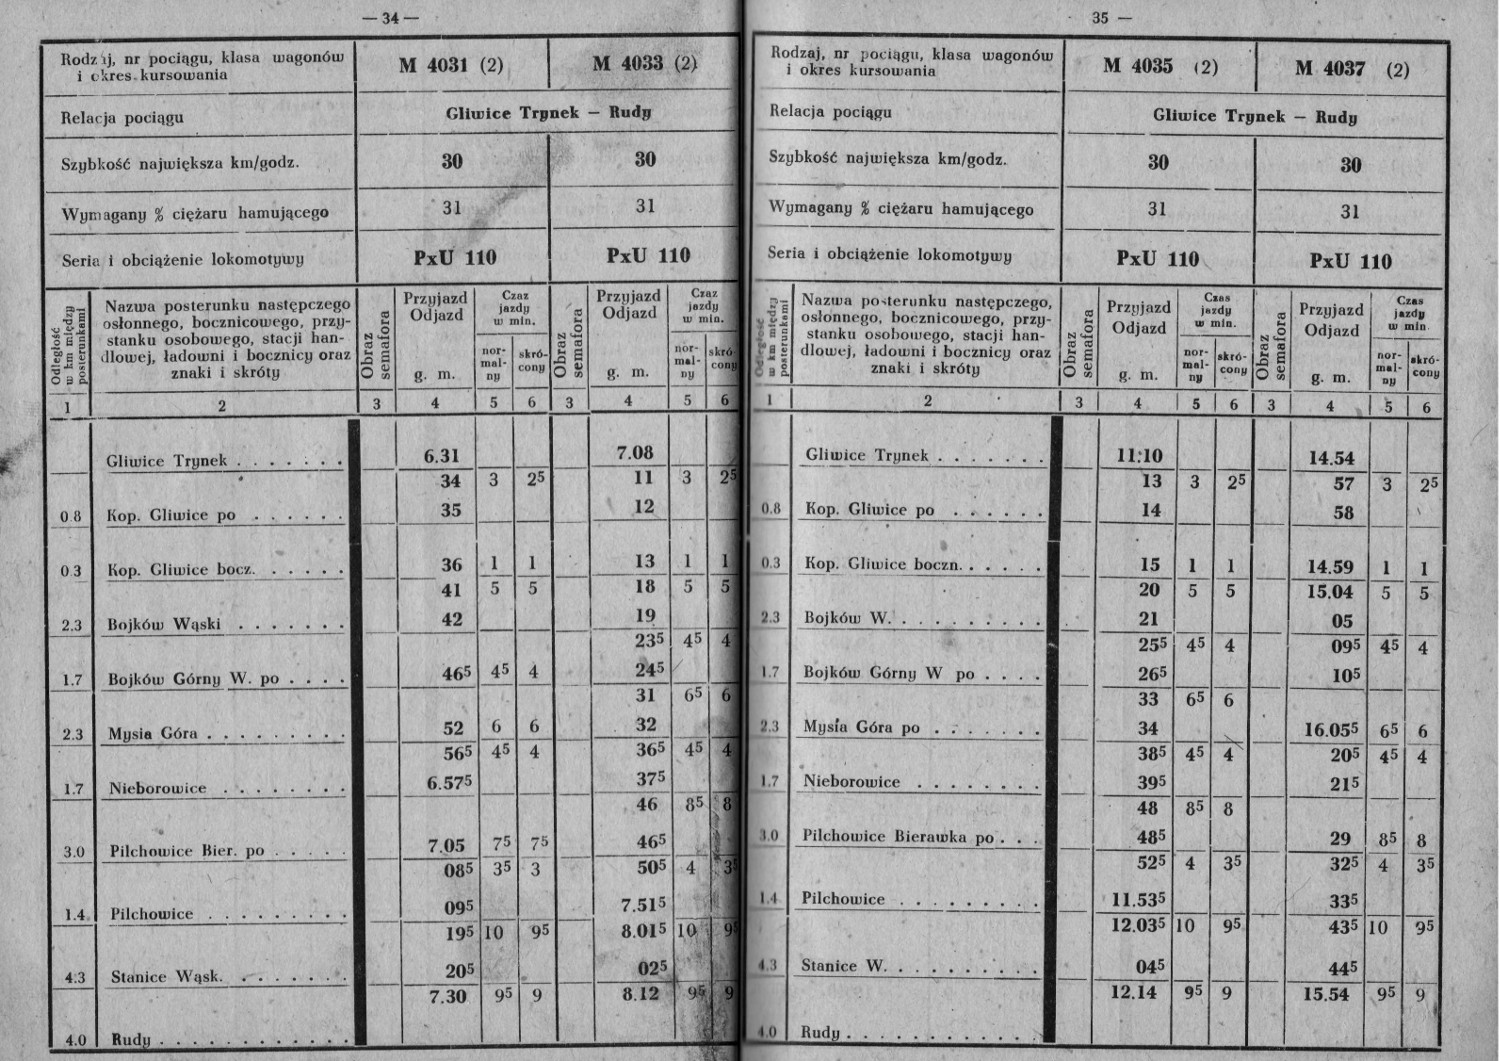 — 34 —
Rodzaj, nr pociągu, klasa wagonów
i okres kursowania
M 4031 (2)
M 4033 (2)
Relacja pociągu
Gliwice Trynek — Rudy
Szybkość największa km/godz.
30
30
Wymagany % ciężaru hamującego
31
31
Seria i obciążenie lokomotywy
PxU 110
PxU 110
Odległość w km między posterunkami
Nazwa posterunku następczego
osłonnego, bocznicowego, przy-
stanku osobowego, stacji han-
dlowej, ładowni i bocznicy oraz
znaki i skróty
Obraz semafora
Przyjazd
Odjazd
g. m.
Czaz
jazdy
w min.
nor-
mal-
ny
skró-
cony
Obraz semafora
Przyjazd
Odjazd
g. m.
Czaz
jazdy
w min.
nor-
mal-
ny
skró-
cony
1 2 3 4 5 6 3 4 5 6
Gliwice Trynek . . . . . . . 6.31 7.08
34 3 2⁵ 11 3 2⁵
0.8 Kop. Gliwice po . . . . . . 35 12
0.3 Kop. Gliwice bocz. . . . . . 36 1 1 13 1 1
41 5 5 18 5 5
2.3 Bojków Wąski . . . . . . . 42 19
23⁵ 4⁵ 4
1.7 Bojków Górny W. po . . . . 46⁵ 4⁵ 4 24⁵
31 6⁵ 6
2.3 Mysia Góra . . . . . . . . . 52 6 6 32
56⁵ 4⁵ 4 36⁵ 4⁵ 4
1.7 Nieborowice . . . . . . . 6.57⁵ 37⁵
46 8⁵ 8
3.0 Pilchowice Bier. po . . . . . 7.05 7⁵ 7⁵ 46⁵
08⁵ 3⁵ 3 50⁵ 4 3⁵
1.4 Pilchowice . . . . . . . . . 09⁵ 7.51⁵
19⁵ 10 9⁵ 8.01⁵ 10 9⁵
4.3 Stanice Wąsk. . . . . . . . 20⁵ 02⁵
7.30 9⁵ 9 8.12 9⁵ 9
4.0 Rudy . . . . . . . . . . . .
35 —
Rodzaj, nr pociągu, klasa wagonów
i okres kursowania
M 4035 (2)
M 4037 (2)
Relacja pociągu
Gliwice Trynek — Rudy
Szybkość największa km/godz.
30
30
Wymagany % ciężaru hamującego
31
31
Seria i obciążenie lokomotywy
PxU 110
PxU 110
Odległość w km między posterunkami
Nazwa posterunku następczego,
osłonnego, bocznicowego, przy-
stanku osobowego, stacji han-
dlowej, ładowni i bocznicy oraz
znaki i skróty
Obraz semafora
Przyjazd
Odjazd
g. m.
Czas
jazdy
w min.
nor-
mal-
ny
skró-
cony
Obraz semafora
Przyjazd
Odjazd
g. m.
Czas
jazdy
w min.
nor-
mal-
ny
skró-
cony
1 2 3 4 5 6 3 4 5 6
Gliwice Trynek . . . . . . . 11.10 14.54
13 3 2⁵ 57 3 2⁵
0.8 Kop. Gliwice po . . . . . . 14 58
0.3 Kop. Gliwice boczn. . . . . . 15 1 1 14.59 1 1
20 5 5 15.04 5 5
2.3 Bojków W. . . . . . . . . . 21 05
25⁵ 4⁵ 4 09⁵ 4⁵ 4
1.7 Bojków Górny W po . . . . 26⁵ 10⁵
33 6⁵ 6
2.3 Mysia Góra po . . . . . . . 34 16.05⁵ 6⁵ 6
38⁵ 4⁵ 4 20⁵ 4⁵ 4
1.7 Nieborowice . . . . . . . . 39⁵ 21⁵
48 8⁵ 8
3.0 Pilchowice Bierawka po . . . 48⁵ 29 8⁵ 8
52⁵ 4 3⁵ 32⁵ 4 3⁵
1.4 Pilchowice . . . . . . . . . 11.53⁵ 33⁵
12.03⁵ 10 9⁵ 43⁵ 10 9⁵
4.3 Stanice W. . . . . . . . . . . 04⁵ 44⁵
12.14 9⁵ 9 15.54 9⁵ 9
4.0 Rudy . . . . . . . . . . . .